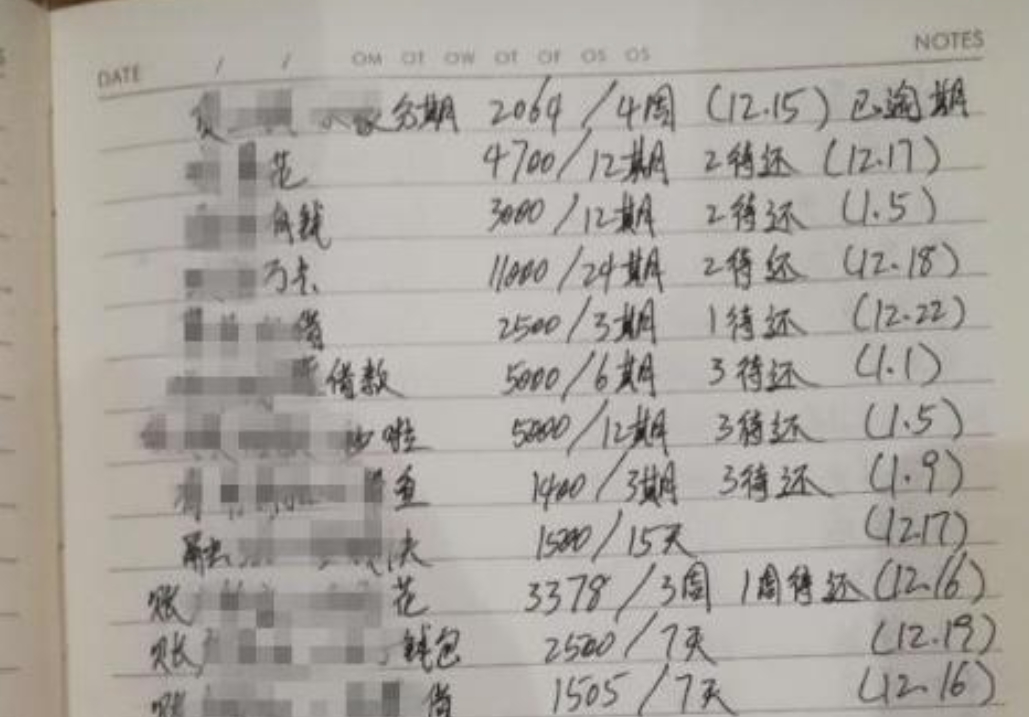 DATE / / OM OT OW OT OF OS OS NOTES
分期 2064 / 4周 (12.15) 已逾期
花 4700 / 12期 2待还 (12.17)
3000 / 12期 2待还 (1.5)
万卡 11000 / 24期 2待还 (12.18)
借 2500 / 3期 1待还 (12.22)
借款 5000 / 6期 3待还 (1.1)
啦 5000 / 12期 3待还 (1.5)
鱼 1400 / 3期 3待还 (1.9)
1500 / 15天 (12.17)
账 花 3378 / 3周 1周待还 (12.16)
账 钱包 2500 / 7天 (12.19)
账 借 1505 / 7天 (12.16)